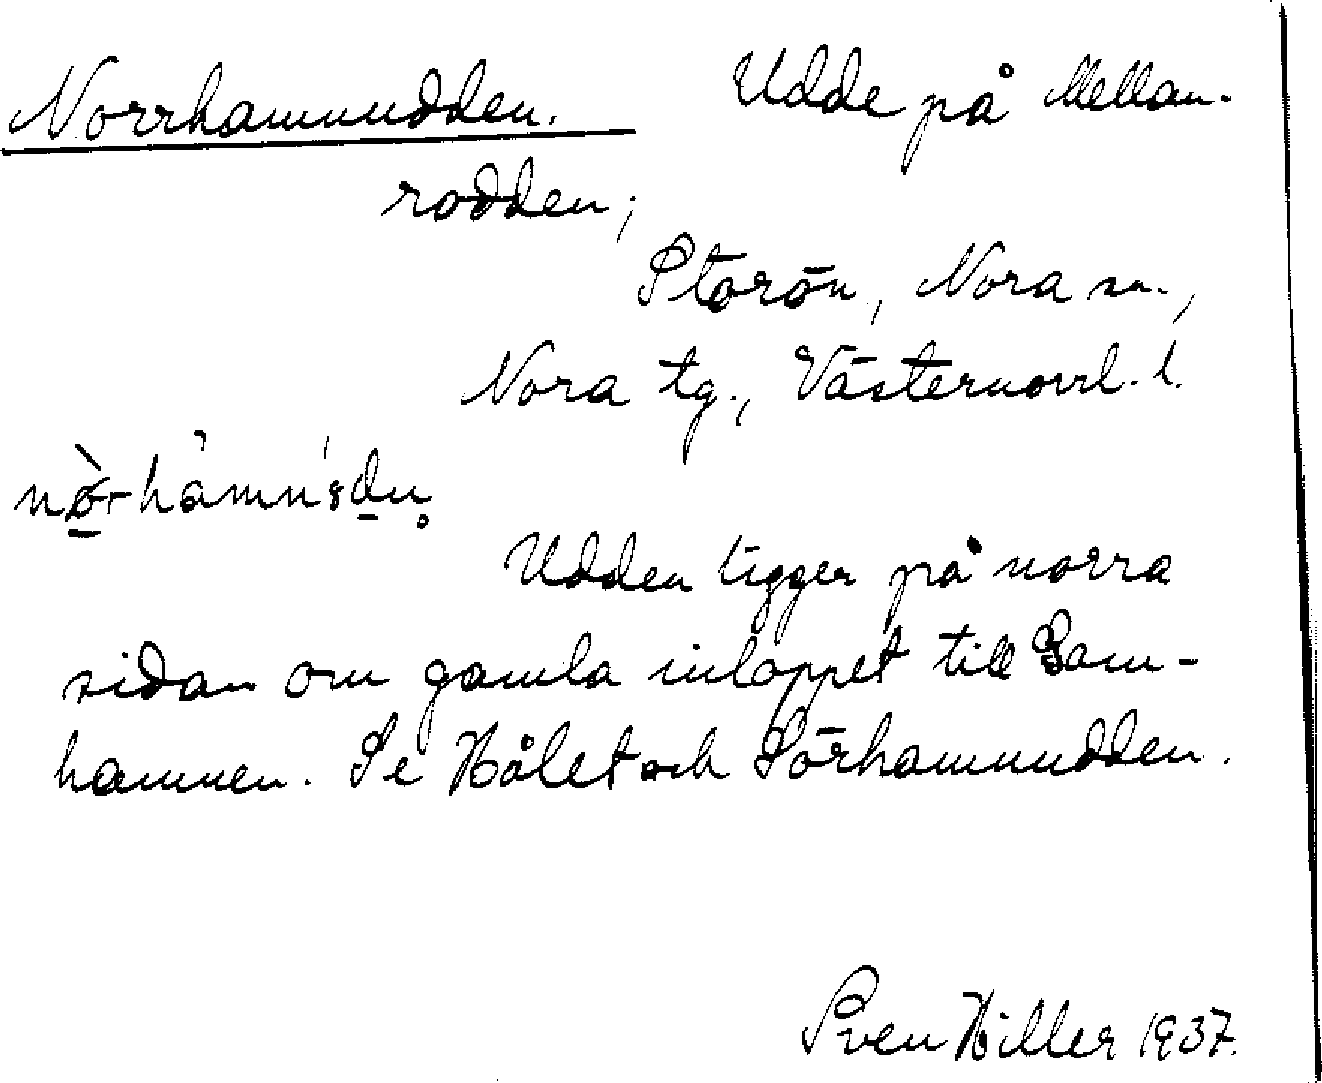 Norrhamnudden. Udde på Mellan-
rodden;
Storön, Nora sn.,
Nora tg., Västernorrl. l.
Udden ligger på norra
sidan om gamla inloppet till Sam-
hamnen. Se Hålet och Sörhamnudden.
Sven Hiller 1937.